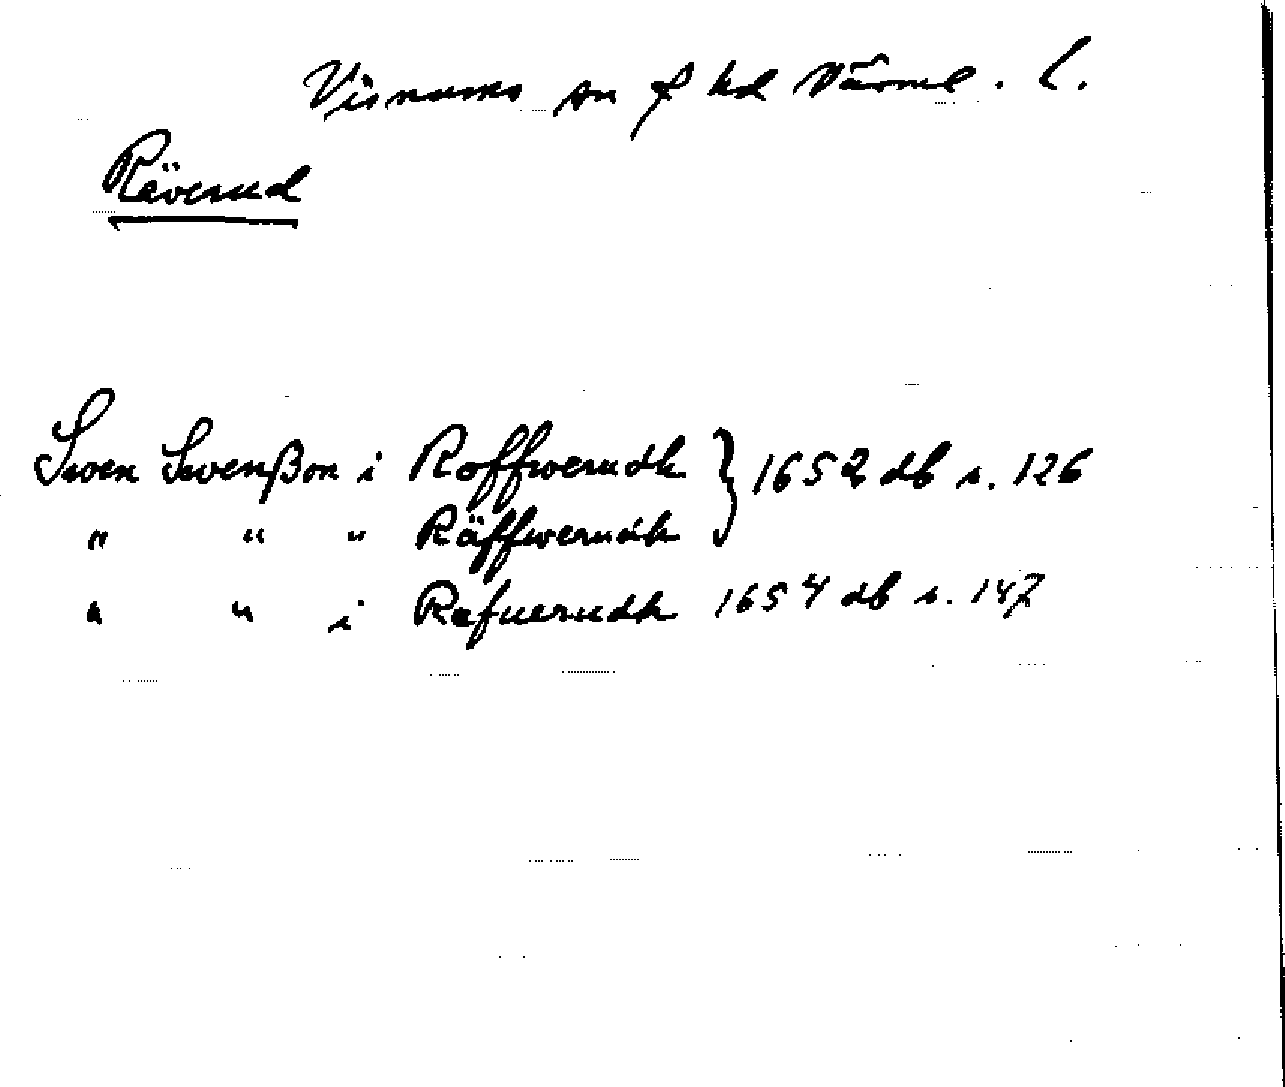 Visnums sn o hd Värml. l.
Räverud
Swen Swenßon i Roffwerudh } 1652 db s. 126
" " " Räffwerudh
" " i Refuerudh 1654 db s. 147